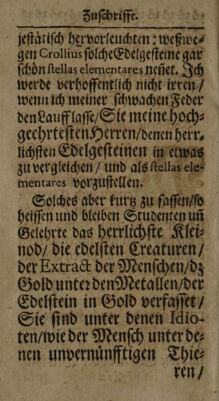 Zuschrifft.
jestätisch hervorleuchten: weßwe-
gen Crollius solche Edelgesteine gar
schön stellas elementares nennet. Ich
werde verhoffentlich nicht irren /
wenn ich meiner schwachen Feder
den Lauff lasse / Sie meine hoch-
geehrtesten Herren / denen herr-
lichsten Edelgesteinen in etwas
zu vergleichen / und als stellas ele-
mentares vorzustellen.
Solches aber kurtz zu fassen / so
heissen und bleiben Studenten uñ
Gelehrte das herrlichste Klei-
nod / die edelsten Creaturen /
der Extract der Menschen / dz
Gold unter den Metallen / der
Edelstein in Gold verfasset /
Sie sind unter denen Idio-
ten / wie der Mensch unter de-
nen unvernünfftigen Thie-
ren /